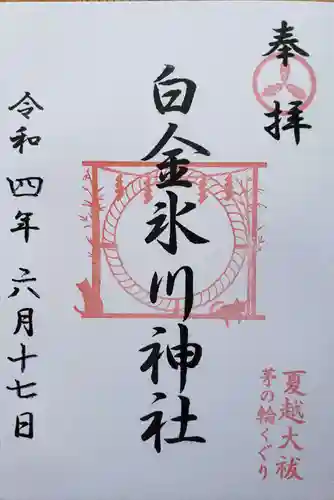 奉拝
白金氷川神社
令和四年 六月十七日
夏越大祓
茅の輪くぐり